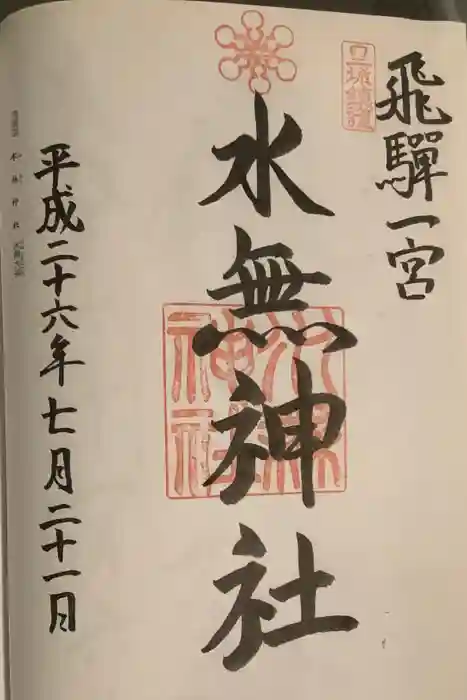 飛驒一宮
水無神社
平成二十六年七月二十一日